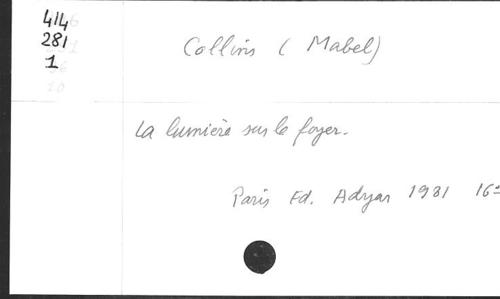 414
281
1
Collins (Mabel)
La lumière sur le foyer.
Paris Ed. Adyar 1981 16°